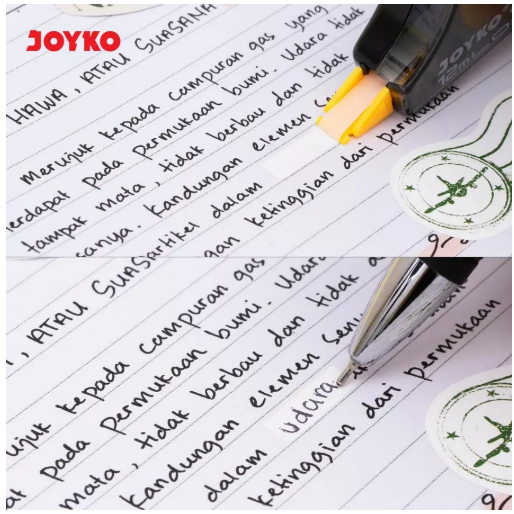 JOYKO
HAWA, ATAU SUASANA
merujuk kepada campuran gas yang
erdapat pada permukaan bumi. Udara tidak
tampak mata, tidak berbau dan tidak
sanya. kandungan elemen sen
partikel dalam
gan ketinggian dari permukaan
JOYKO
12m
, ATAU SUASA
ujuk kepada campuran gas
at pada permukaan bumi. Udara
mata, tidak berbau dan tidak a
kandungan elemen seny
dalam udara
ketinggian dari permukaan